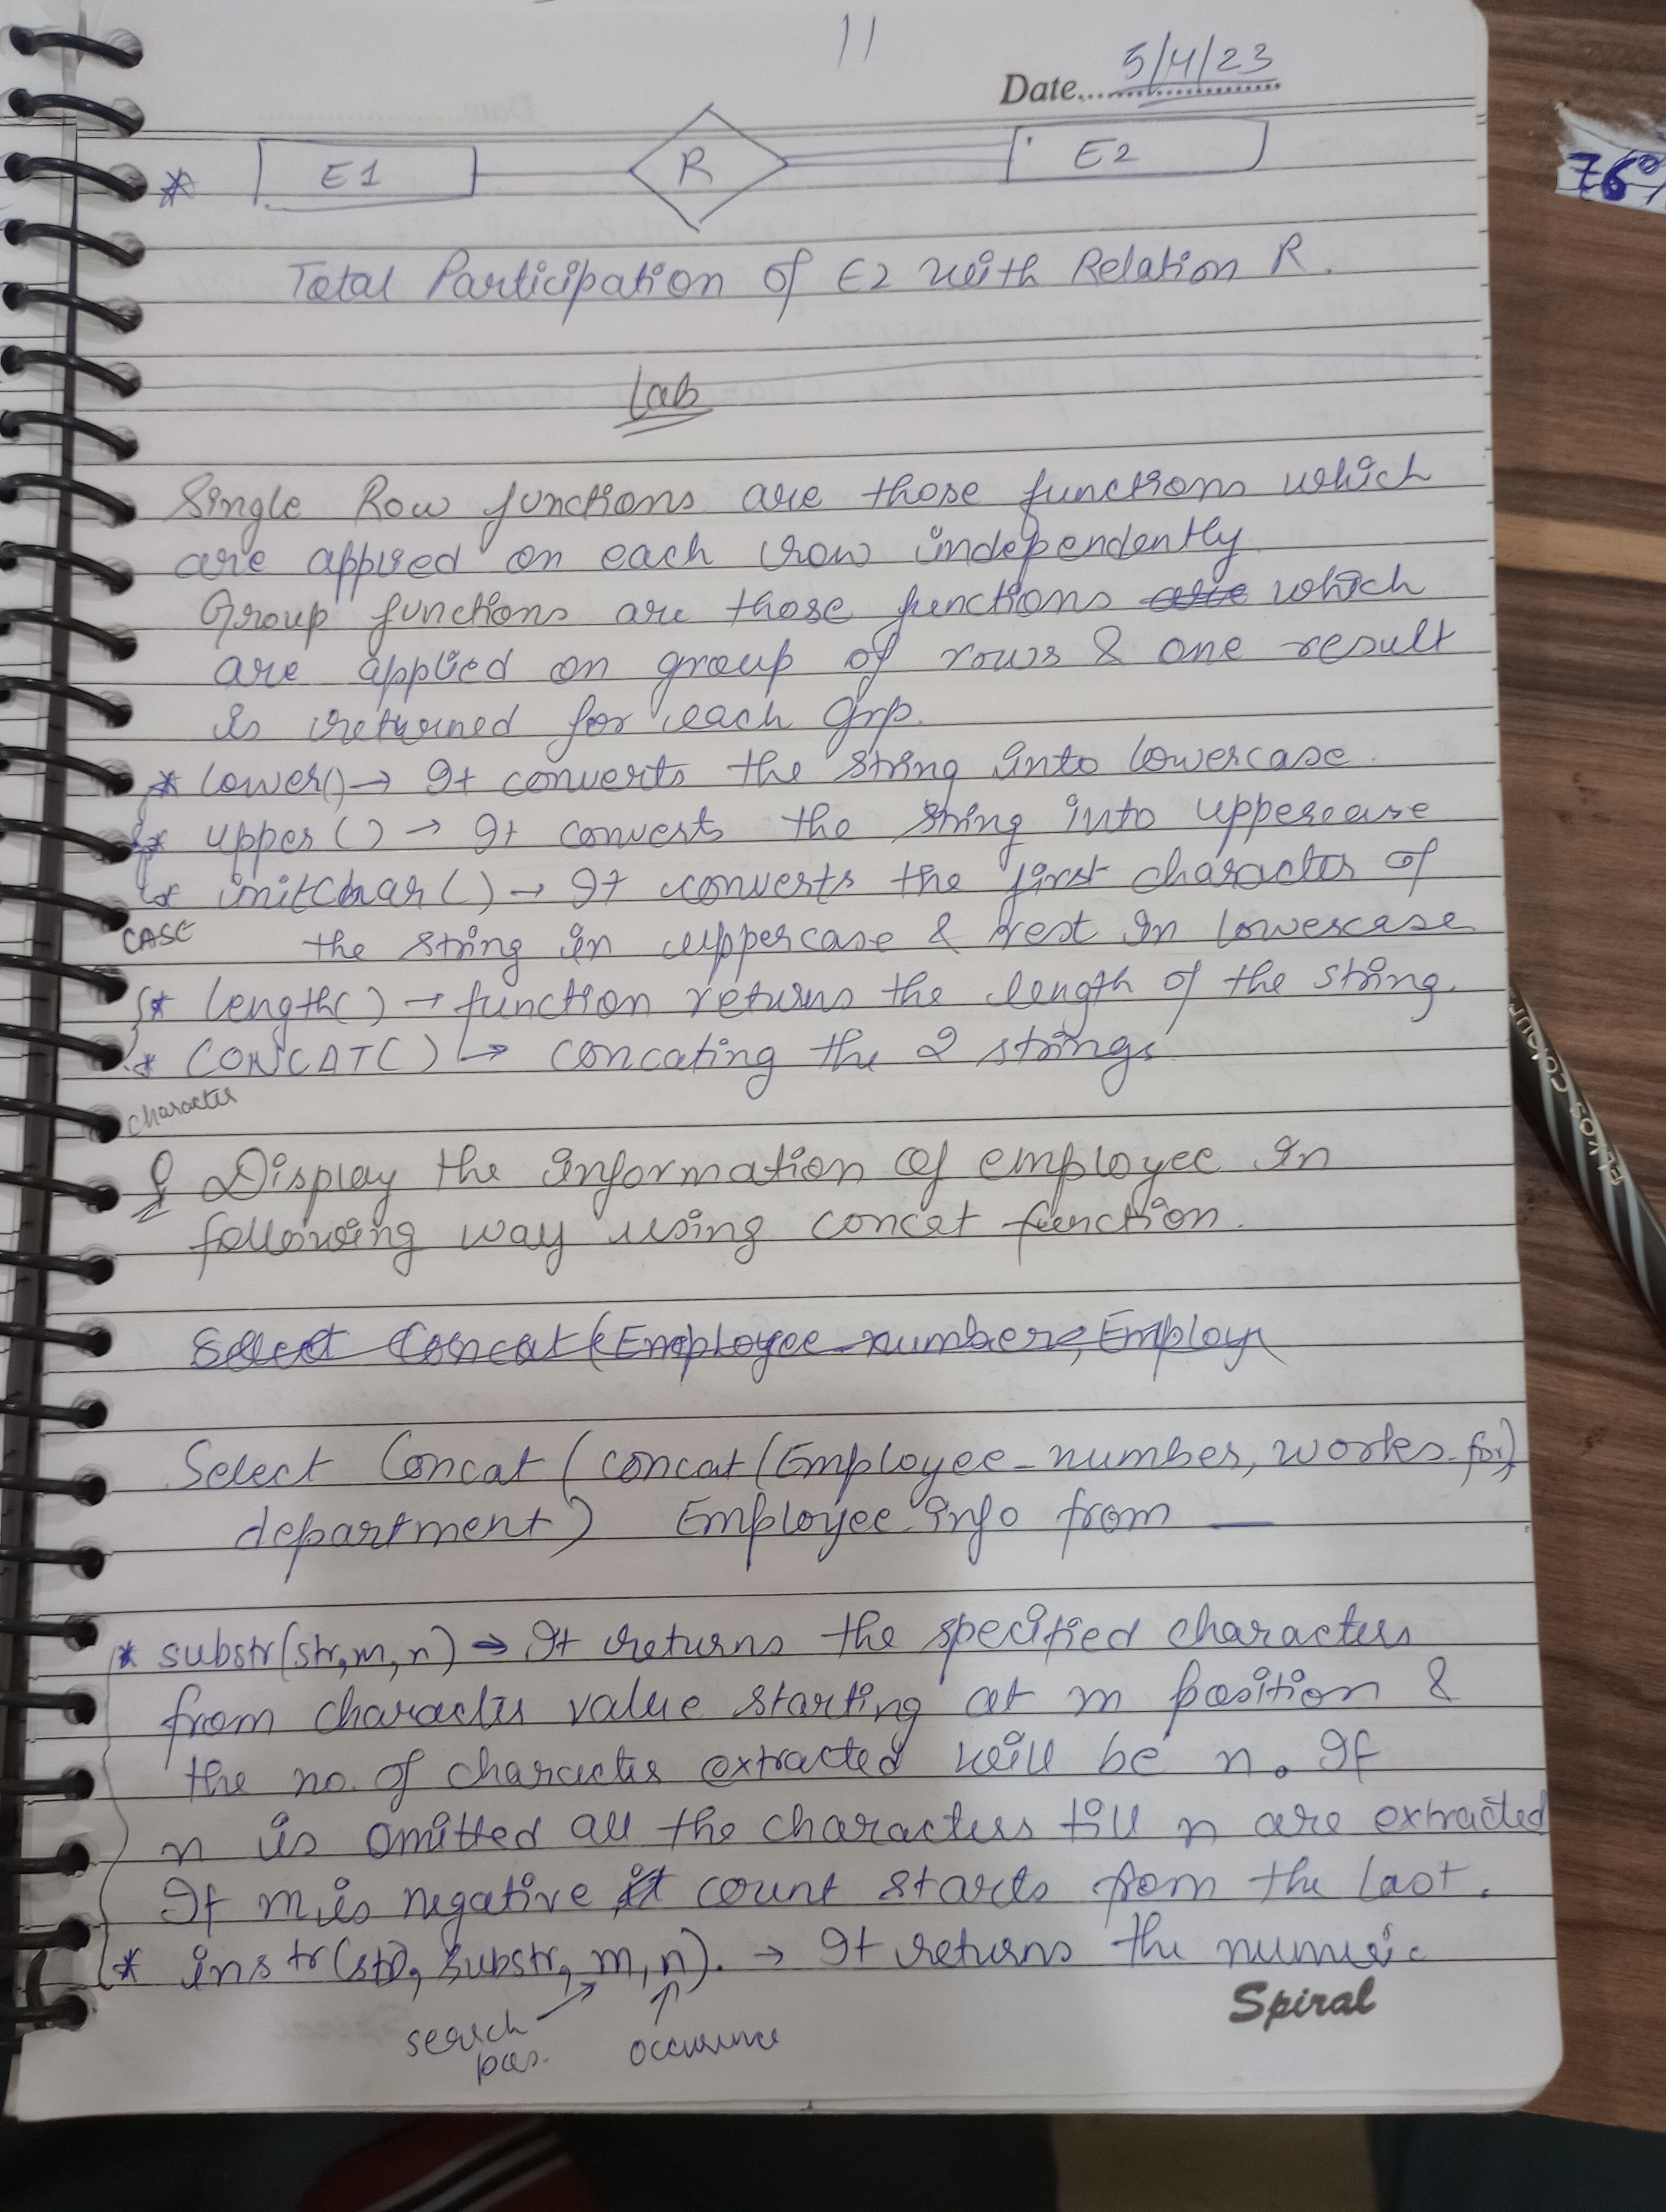 11
Date.... 5/4/23
* E1 R E2
76%
Total Participation of E2 with Relation R.
Lab
Single Row functions are those functions which
are applied on each row independently.
Group functions are those functions are which
are applied on group of rows & one result
is returned for each grp.
* lower() → It converts the string into lowercase.
* upper () → It converts the string into uppercase
* initChar () → It converts the first character of
CASE the string in uppercase & rest in lowercase
* length() → function returns the length of the string.
* CONCAT() → concating the 2 strings
character
Q Display the information of employee in
following way using concat function.
Select Concat (Employee_number, Employ
Select Concat (concat (Employee_number, works_for),
department) Employee_info from —
* substr(str,m,n) → It returns the specified characters
from character value starting at m position &
the no. of character extracted will be n. If
n is omitted all the characters till n are extracted
If m is negative it count starts from the last.
* instr(str, substr, m, n). → It returns the numeric
search pos. occurence
Spiral